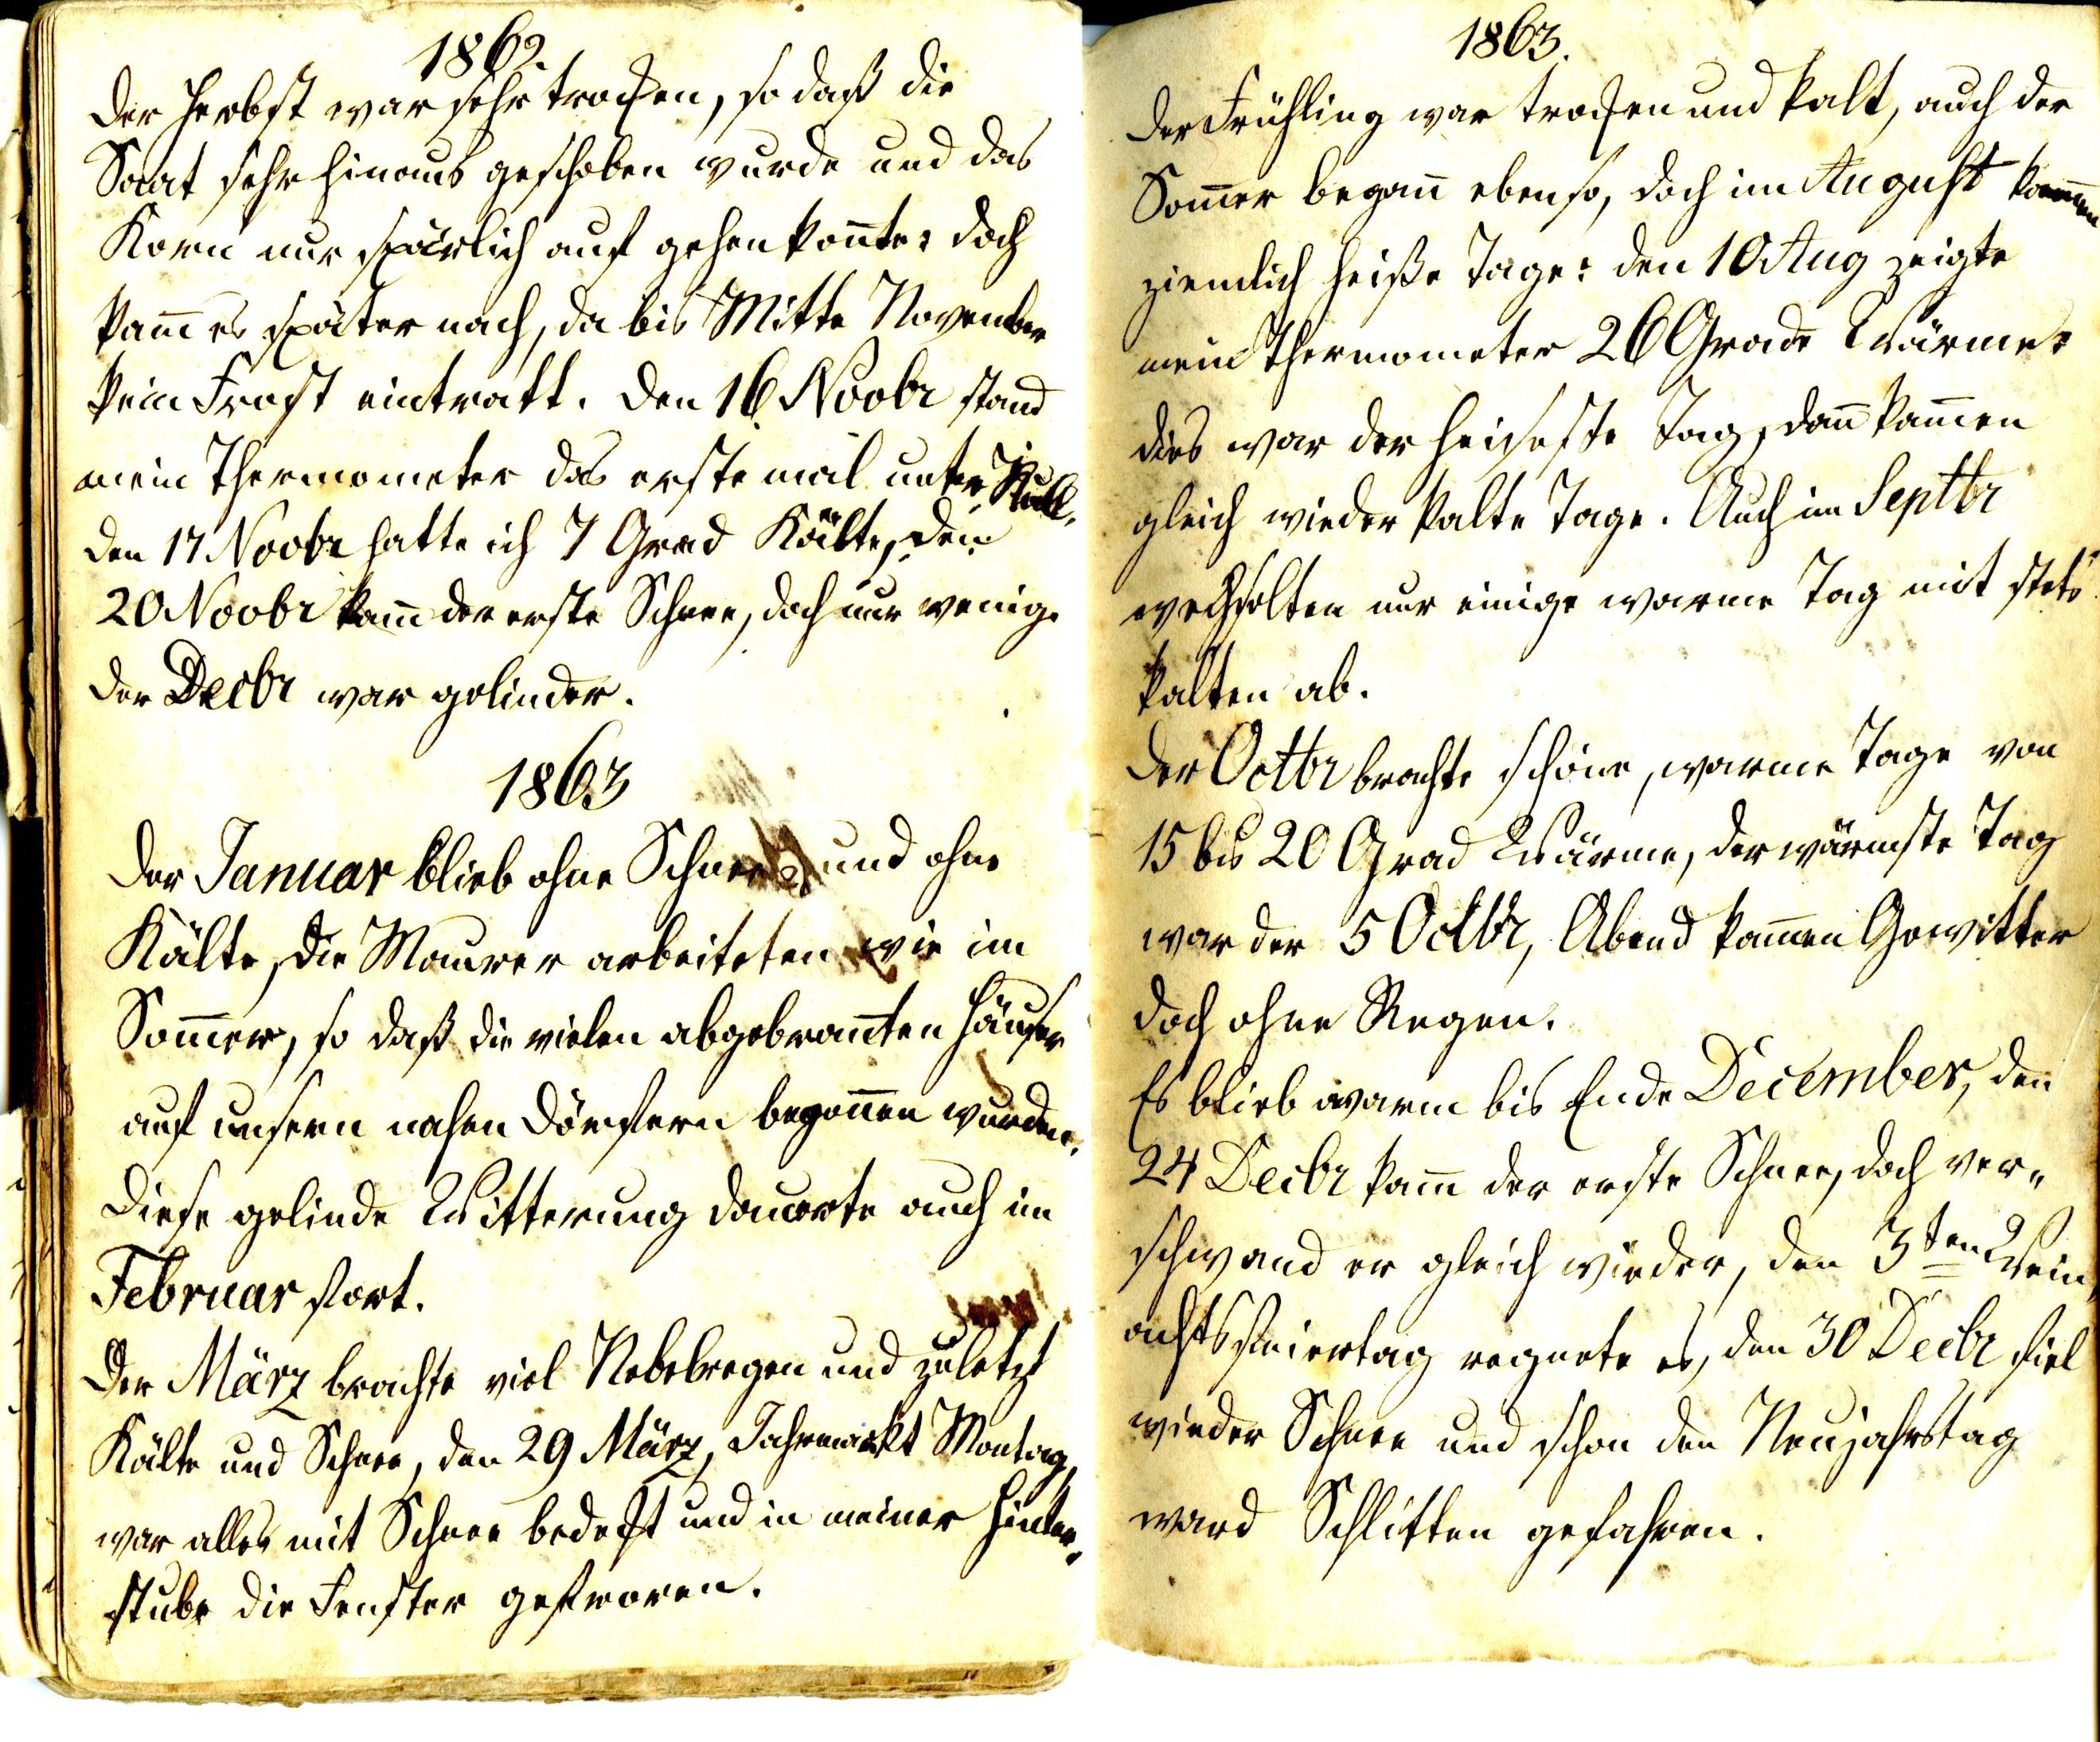 1862.
Der Herbst war sehr trocken, so daß die
Saat sehr hinaus geschoben wurde und das
Korn nur spärlich auf gehen kon̅te: doch
kam̅ es später nach, da bis Mitte November
kein Frost eintratt. Den 16 Novbr stand
mein Thermometer das erste mal unter Null.
Den 17 Novbr hatte ich 7 Grad Kälte, den
20 Novbr kam̅ der erste Schnee, doch nur wenig.
Der Decbr war gelinder.
1863
Der Januar blieb ohne Schnee und ohne
Kälte, die Maurer arbeiteten wie im
Som̅er, so daß die vielen abgebran̅ten Häuser
auf unsern nahen Dörfern begon̅en wurden.
Diese gelinde Witterung dauerte auch im
Februar fort.
Der März brachte viel Nebelregen und zuletzt
Kälte und Schnee, den 29 März, Jahrmarkt Montag,
war alles mit Schnee bedeckt und in meiner Hinter-
stube die Fenster gefroren.
1863.
Der Frühling war trocken und kalt, auch der
Som̅er began̅ ebenso, doch im August kam̅en
ziemlich heiße Tage: den 10 Aug zeigte
mein Thermometer 26 Grade Wärme:
dies war der heiseste Tag, dan̅ kam̅en
gleich wieder kalte Tage. Auch im Septbr
wechselten nur einige warme Tag mit stets
kalten ab.
Der Octbr brachte schöne, warme Tage von
15 bis 20 Grad Wärme, der wärmste Tag
war der 5 Octbr, Abend kam̅en Gewitter
doch ohne Regen.
Es blieb warm bis Ende December, den
24 Decbr kam̅ der erste Schnee, doch ver-
schwand er gleich wieder, den 3ten Wein-
achtsfeiertag regnete es, den 30 Decbr fiel
wieder Schnee und schon den Neujahrstag
ward Schlitten gefahren.